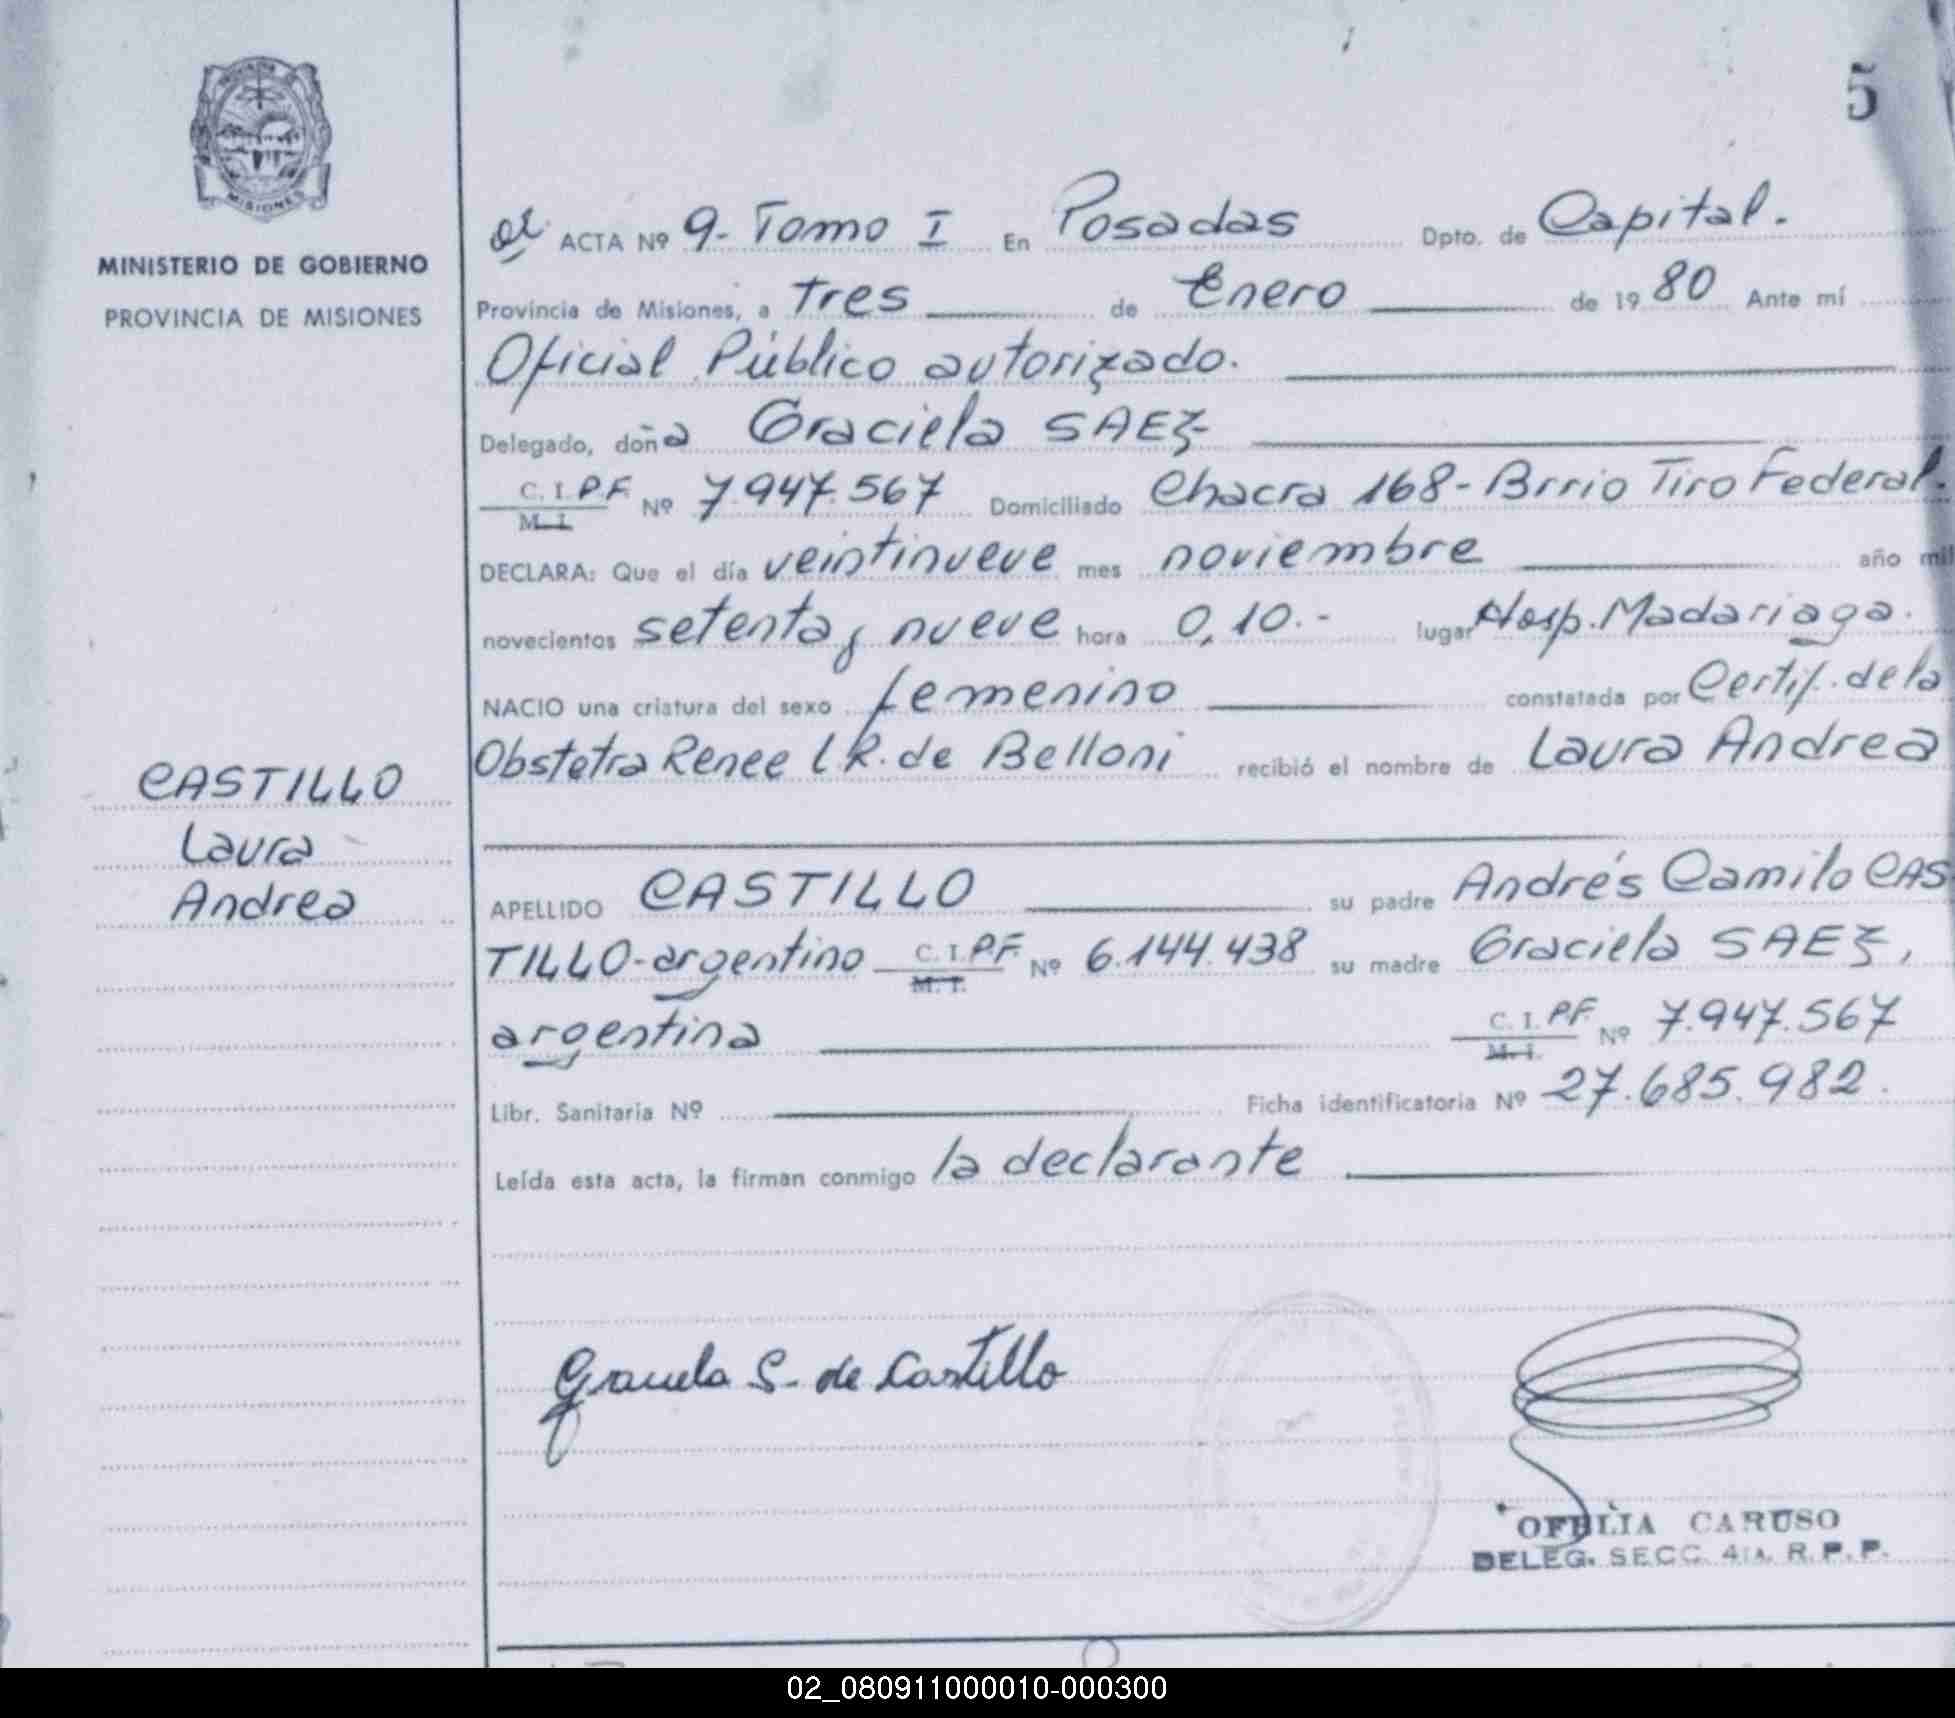 5
MISIONES
MINISTERIO DE GOBIERNO
PROVINCIA DE MISIONES
ACTA Nº 9- Tomo I En Posadas Dpto. de Capital.
Provincia de Misiones, a tres de Enero de 1980 Ante mí
Oficial Público autorizado.
Delegado, doña Graciela SAEZ
C. I. P.F. Nº 7.947.567 Domiciliado Chacra 168- Brrio Tiro Federal.
M. I.
DECLARA: Que el día veintinueve mes noviembre año mil
novecientos setenta y nueve hora 0,10.- lugar Hosp. Madariaga.
NACIO una criatura del sexo femenino constatada por Certif. de la
Obstetra Renee l R. de Belloni recibió el nombre de Laura Andrea
CASTILLO
Laura
Andrea
APELLIDO CASTILLO su padre Andrés Camilo CAS
TILLO-argentino C. I. P.F. Nº 6.144.438 su madre Graciela SAEZ,
M. I.
argentina C. I. P.F. Nº 7.947.567
M. I.
Libr. Sanitaria Nº Ficha identificatoria Nº 27.685.982.
Leída esta acta, la firman conmigo la declarante
Graciela S. de Castillo
OFELIA CARUSO
DELEG. SECC. 4ta. R. P. P.
02_080911000010-000300